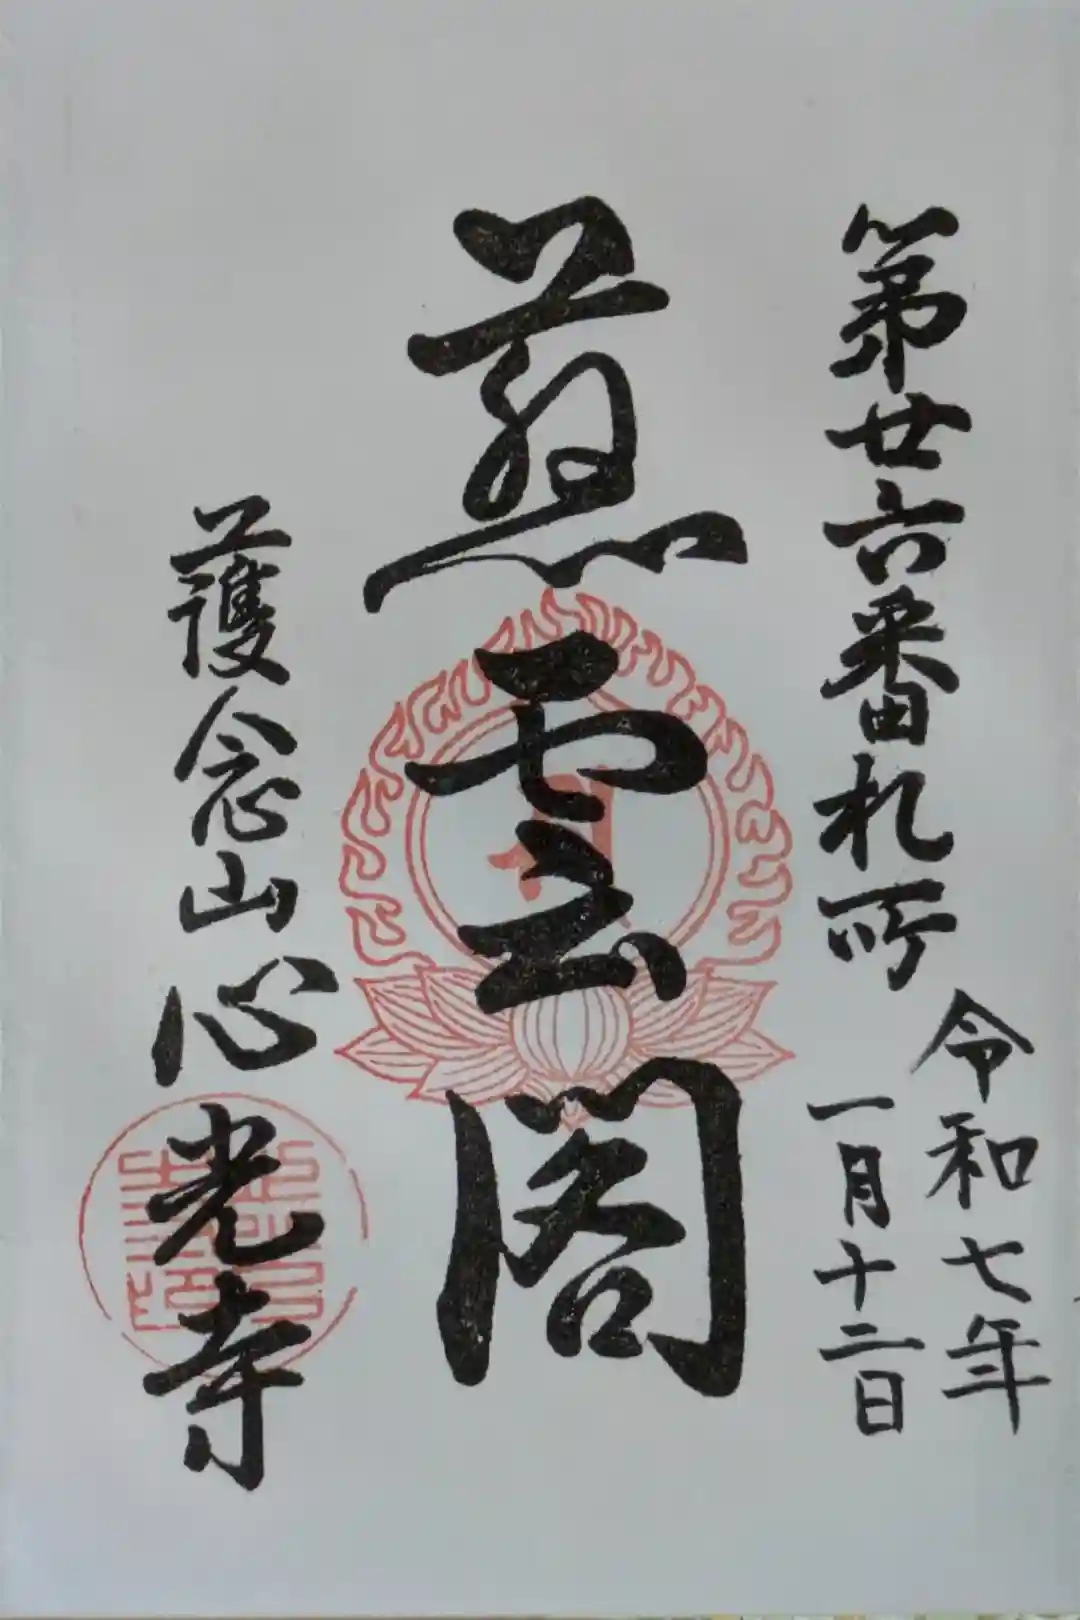 第廿六番札所
令和七年
一月十二日
慈雲閣
護念山
心光寺